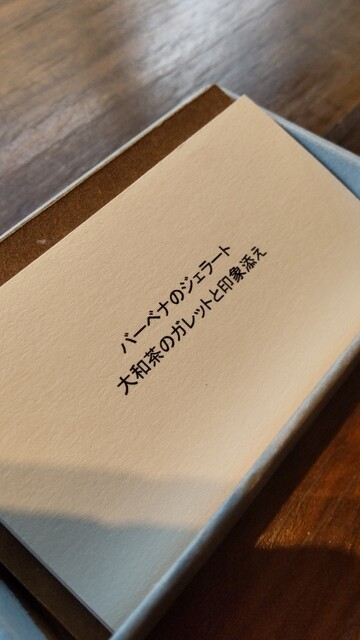 バーベナのジェラート
大和茶のガレットと印象添え